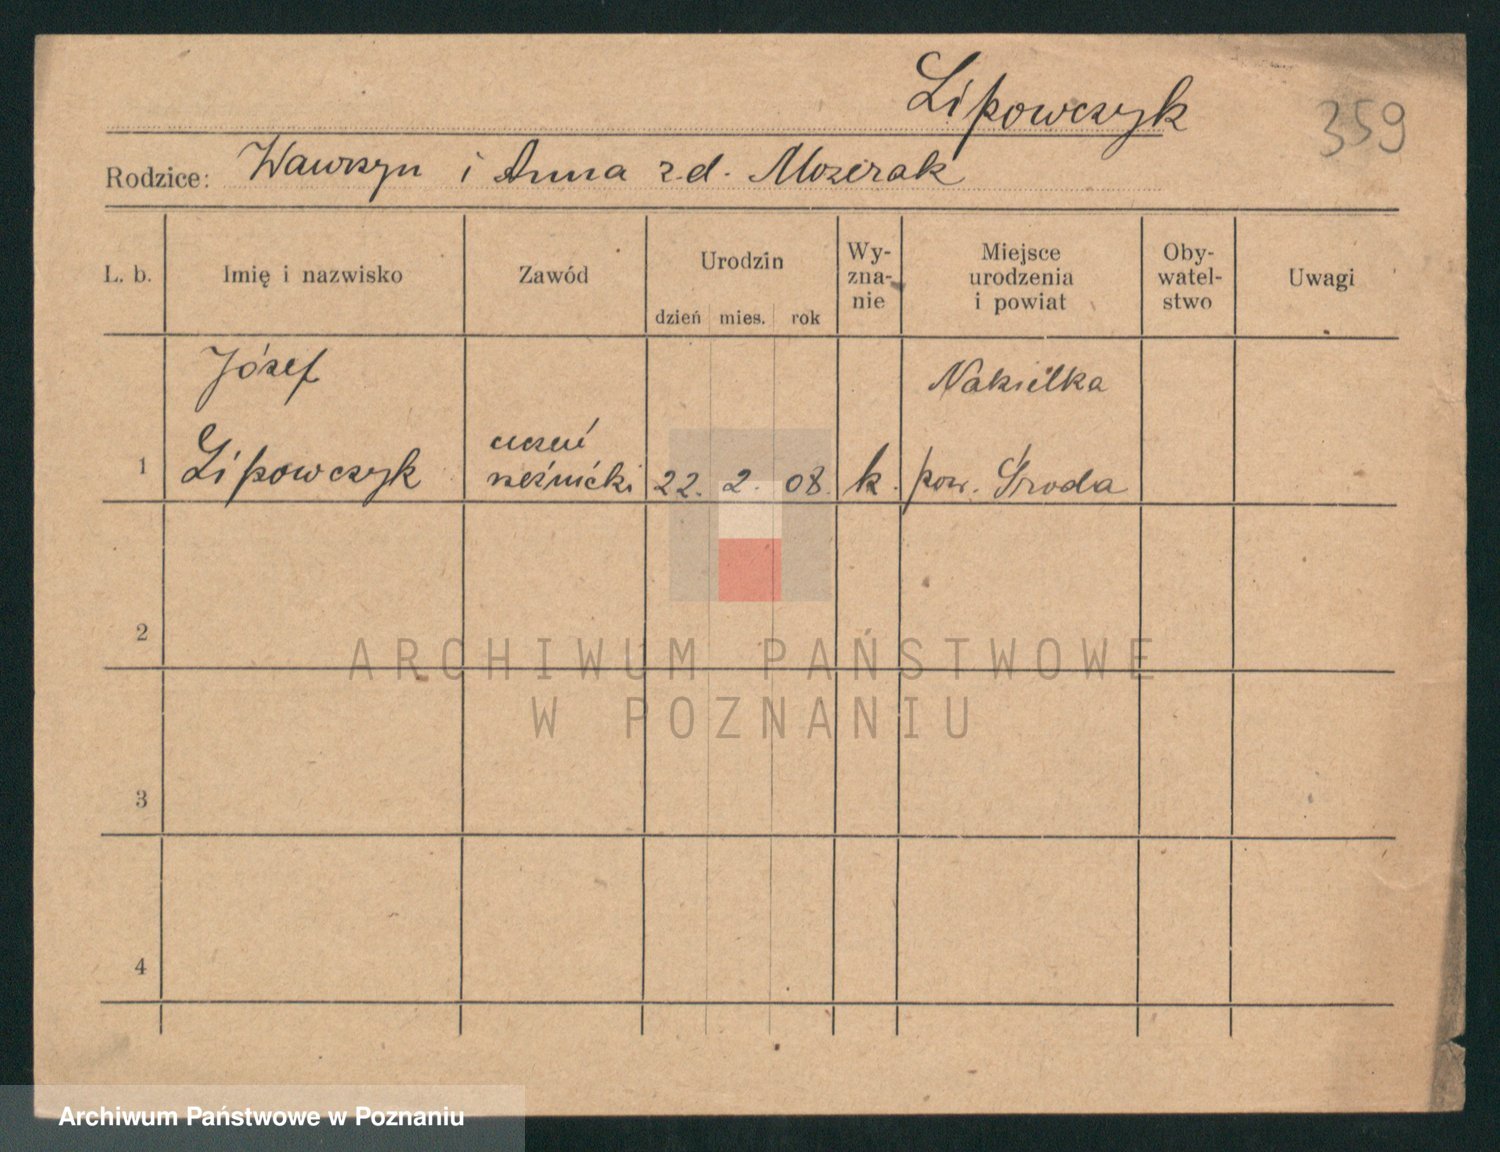 Lipowczyk
359
Rodzice: Wawrzyn i Anna z d. Mozerak
L. b. Imię i nazwisko Zawód Urodzin dzień mies. rok Wy-zna-nie Miejsce urodzenia i powiat Oby-watel-stwo Uwagi
Józef Nakielka
1 Lipowczyk uczeń rzeźnicki 22. 2. 08. k. pow. Środa
2
ARCHIWUM PAŃSTWOWE
W POZNANIU
3
4
Archiwum Państwowe w Poznaniu